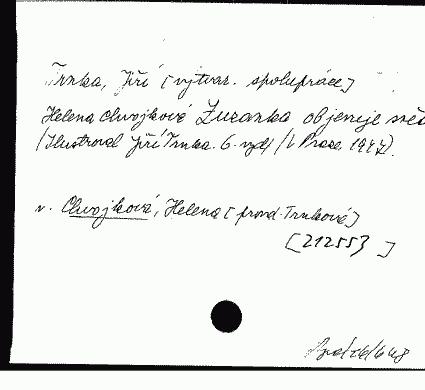 Trnka, Jiří [výtvar. spolupráce]
Helena Chvojkové Zuzanka objevuje svět
(Ilustroval Jiří Trnka. 6. vyd.) V Praze. 1947).
v. Chvojková, Helena [provd. Trnková]
[212553]